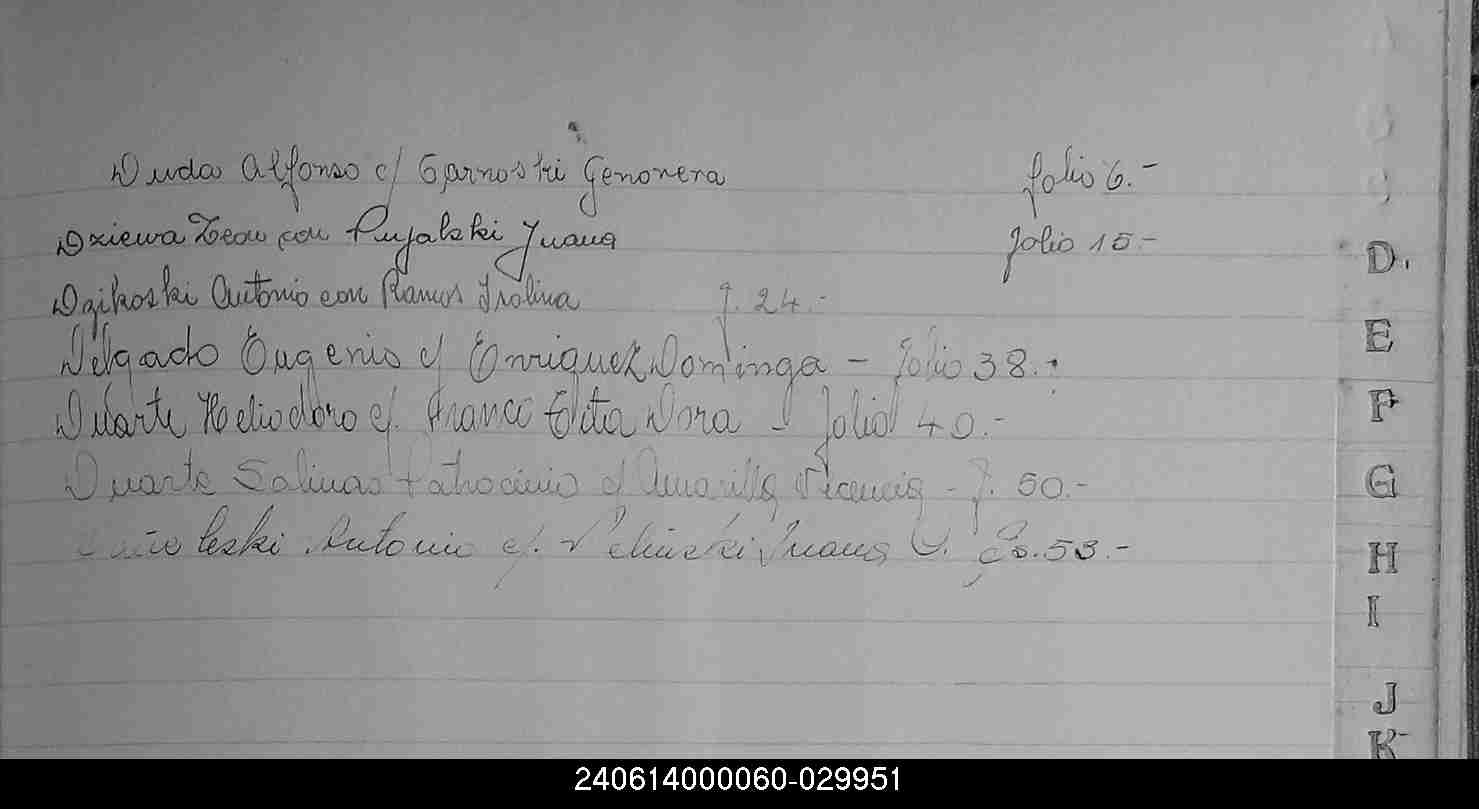 Duda Alfonso c/ Garnoski Genovera folio 6.-
Dziewa Leon con Pujalski Juana folio 15-
Dzikoski Antonio con Ramos Irolina f. 24.-
Delgado Eugenio c/ Enriquez Dominga - folio 38.-
Duarte Heliodoro c/. Franco Elita Dora - folio 40.-
Duarte Salinas Patrocinio c/ Amarilla Vicencia - f. 50.-
leski Antonio c/. Juana G. Fo. 53.-
D.
E
F
G
H
I
J
K
240614000060-029951